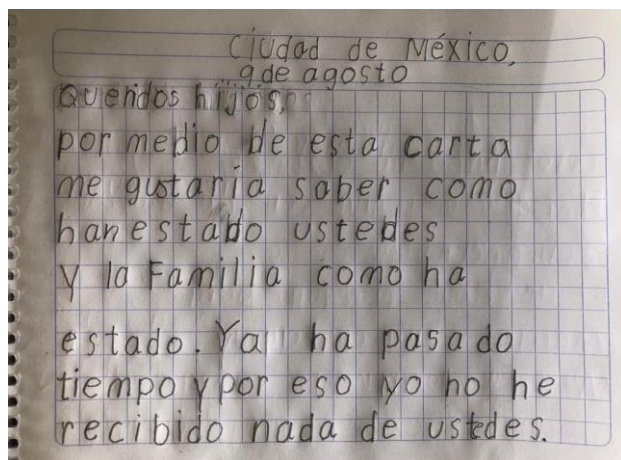 Ciudad de México,
9 de agosto
Queridos hijos,
por medio de esta carta
me gustaría saber como
han estado ustedes
y la Familia como ha
estado. Ya ha pasado
tiempo y por eso yo no he
recibido nada de ustedes.